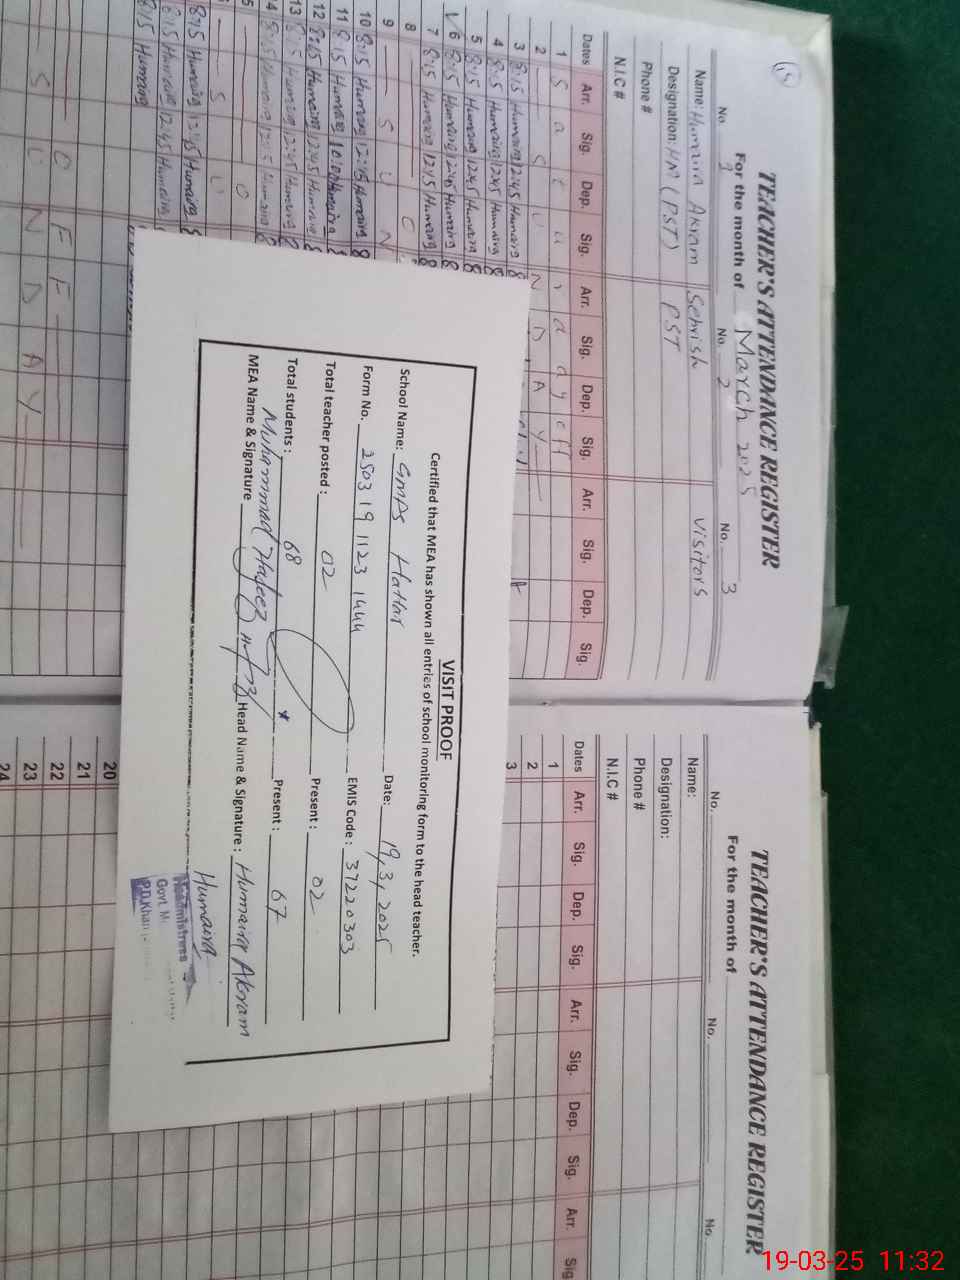 TEACHER'S ATTENDANCE REGISTER
For the month of March 2025
No. 1 No. 2 No. 3
Name: Humaira Akram Sehrish Visitors
Designation: HM (PST) PST
Phone #
N.I.C #
Dates Arr. Sig. Dep. Sig. Arr. Sig. Dep. Sig. Arr. Sig. Dep. Sig.
1 S a t u r d a y off
2 S U N D A Y
3 8:15 Humaira 12:45 Humaira
4 8:15 Humaira 12:45 Humaira
5 8:15 Humaira 12:45 Humaira
6 8:15 Humaira 12:45 Humaira
7 8:15 Humaira 12:45 Humaira
8
9 S U N
10 8:15 Humaira 12:45 Humaira
11 8:15 Humaira Humaira
12 8:15 Humaira 12:45 Humaira
13 8:15 Humaira 12:45 Humaira
14 8:15 Humaira 12:45 Humaira
8:15 Humaira Humaira
8:15 Humaira 12:45 Humaira
8:15 Humaira
O F F
S U N D A Y
VISIT PROOF
Certified that MEA has shown all entries of school monitoring form to the head teacher.
School Name: GMPS Hattar Date: 19,3,2025
Form No. 250319 1123 1444 EMIS Code: 37220303
Total teacher posted: 02 Present: 02
Total students: 68 Present: 67
MEA Name & Signature Muhammad Hafeez Head Name & Signature: Humaira Akram
Humaira
Headmistress
Govt. M
P.D.Khan
TEACHER'S ATTENDANCE REGISTER
For the month of
No. No. No.
Name:
Designation:
Phone #
N.I.C #
Dates Arr. Sig. Dep. Sig. Arr. Sig. Dep. Sig. Arr. Sig.
1
2
3
20
21
22
23
24
19-03-25 11:32